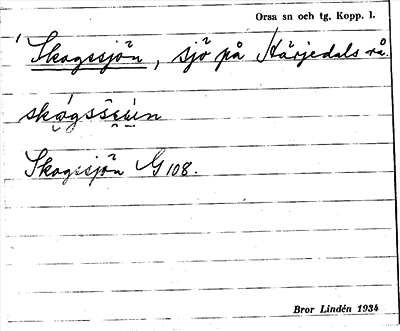 Orsa sn och tg, Kopp. l.
Skogssjön, sjö på Härjedals rå.
Skogssjön G 108.
Bror Lindén 1934